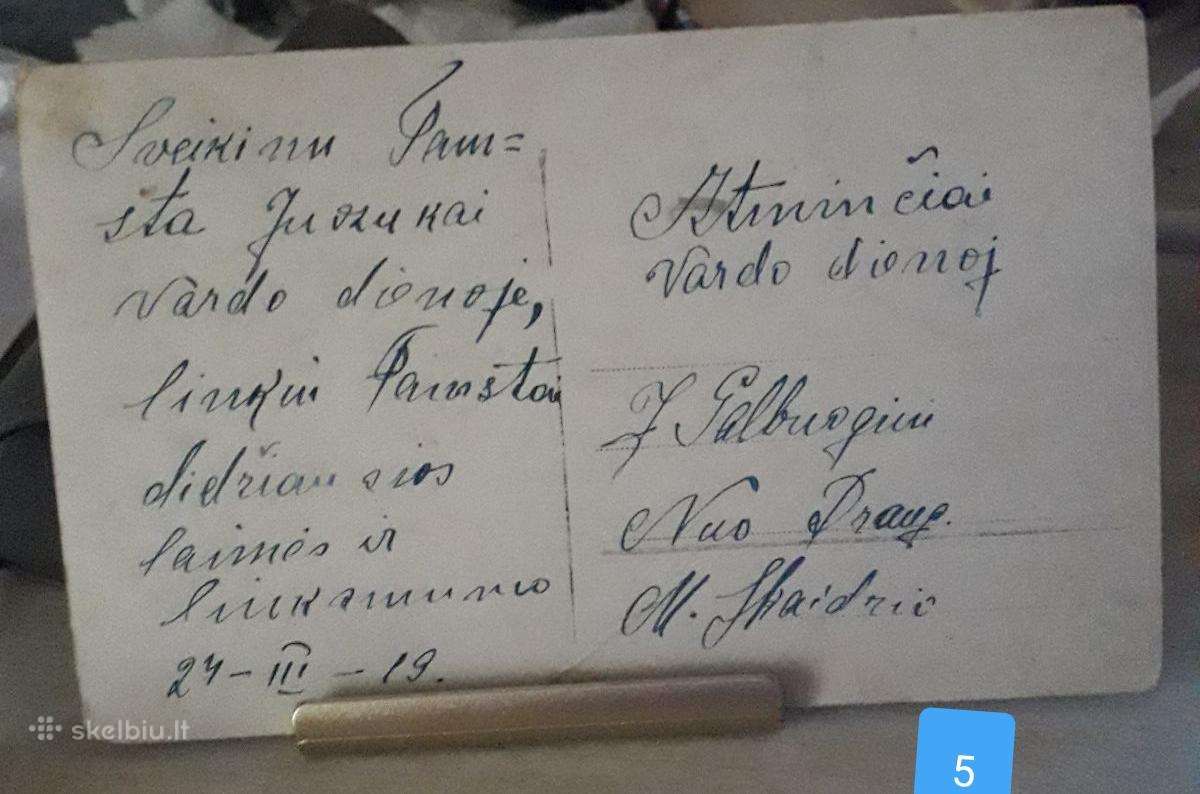 Sveikinu Tam=
sta Juozukai
vardo dienoje,
linkiu Tamstai
didžiausios
laimės ir
linksmumo
27-III-19.
Atminčiai
vardo dienoj
J Galbuogiui
Nuo Draug.
M. Skaidrio
skelbiu.lt
5